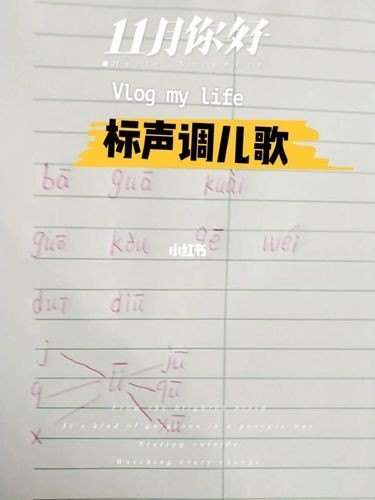 11月你好
Hello November
Vlog my life
标声调儿歌
bā guā kuài
guō kǒu gē wéi
小红书
duī diū
j jū
q ǖ qū
x xū
It's kind of gorgeous in a georgia way
Staring outside
Watching every change